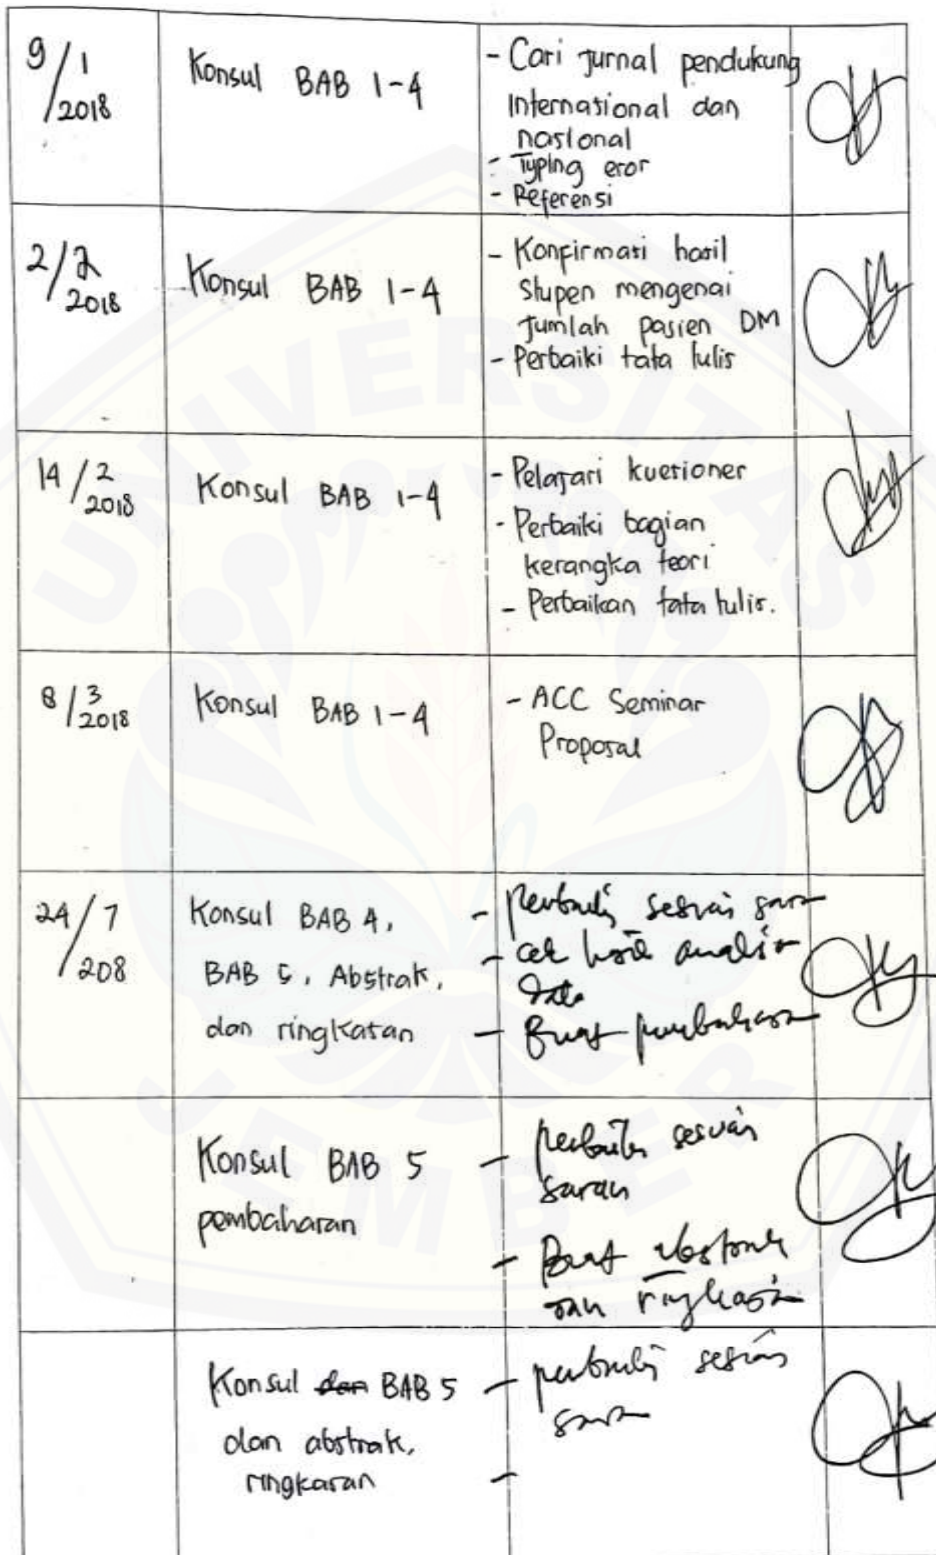 9/1
2018
Konsul BAB 1-4
- Cari jurnal pendukung
Internasional dan
nasional
- Typing eror
- Referensi
2/2
2018
Konsul BAB 1-4
- Konfirmasi hasil
stupen mengenai
jumlah pasien DM
- Perbaiki tata tulis
14/2
2018
Konsul BAB 1-4
- Pelajari kuesioner
- Perbaiki bagian
kerangka teori
- Perbaikan tata tulis.
8/3
2018
Konsul BAB 1-4
- ACC Seminar
Proposal
24/7
208
Konsul BAB 4,
BAB 5, Abstrak,
dan ringkasan
- perbaiki sesuai saran
- cek hasil analisis
data
- Buat pembahasan
Konsul BAB 5
pembahasan
- perbaiki sesuai
saran
- Buat abstrak
dan ringkasan
Konsul dan BAB 5
dan abstrak,
ringkasan
- perbaiki sesuai
saran
-
UNIVERSITAS
JEMBER